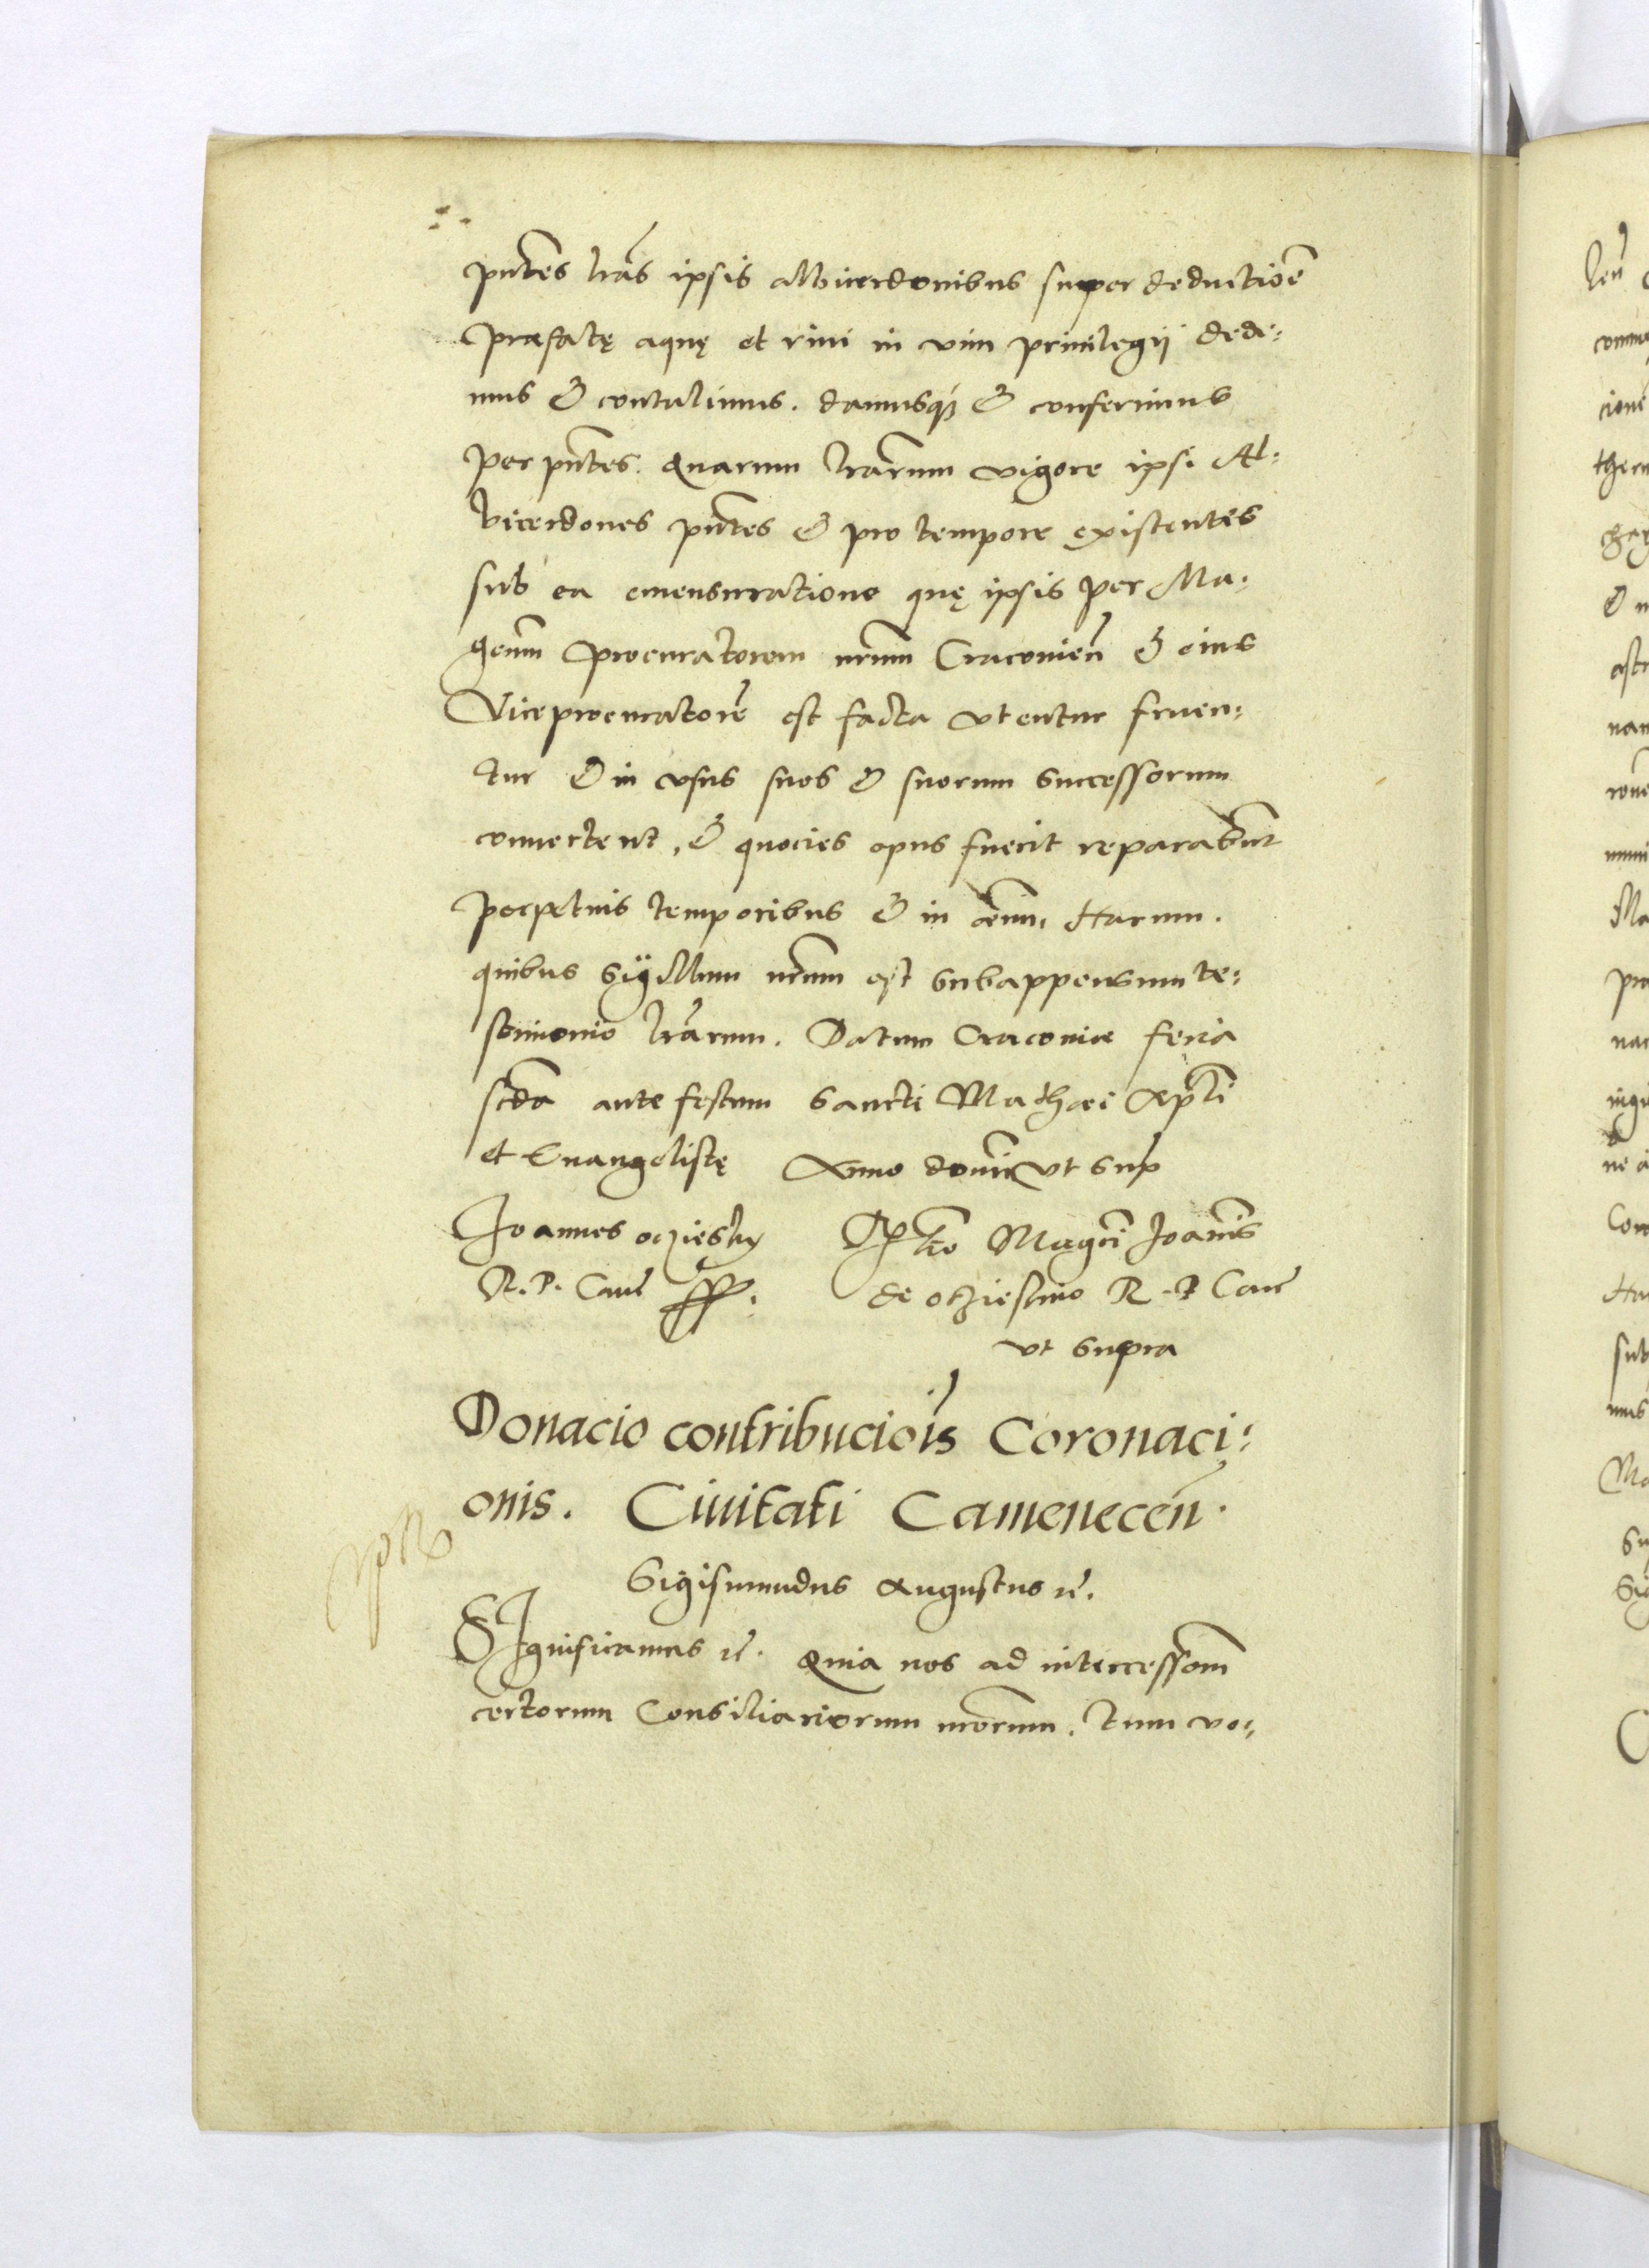 pñtes lr̃as ipsis albicerdonibus super deductiõe
præfatę aquę et riui in vim priuilegij dedi:
mus & contulimus. damusq3 & conferimus
per pñtes. Quarum lr̃arum vigore ipsi Al:
bicerdones pñtes & pro tempore existentes
sub ea emensuratione quę ipsis per Ma:
gcum̃ procuratorem nr̃um Cracouień & eius
Viceprocuratorẽ est facta vtentur fruen:
tur & in vsus suos & suorum successorum
conuertent, & quocies opus fuerit reparabunt̃
perpetuis temporibus & in æuum. Harum.
quibus sigillum nr̃um est subappensum te:
stimonio lr̃arum. Datum Cracouiæ feria
scd̃a ante festum Sancti Mathæi Apl̃i
et Euangelistę Anno domĩ vt sup
Joannes ocziesky
R. P. Canc̃
Rel̃o Magc̃i Joañis
de oczieschino R. P Canc̃
vt supra
Donacio contribucioĩs Coronaci:
onis. Ciuitati Cameneceñ.
Sigismundus Augustus rc̃.
SIgnificamus rc̃. Quia nos ad intercessiom̃
certorum Consiliariorum nr̃orum. tum vo: